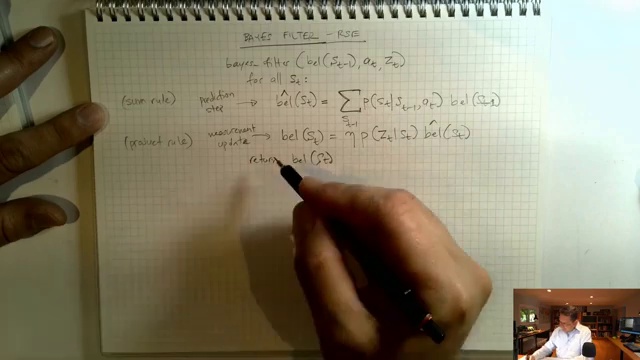 BAYES FILTER - RSE
bayes filter (bel(S_{t-1}), a_t, Z_t)
for all S_t:
(sum rule) prediction step → bel̂(S_t) = Σ_{S_{t-1}} p(S_t|S_{t-1}, a_t) bel(S_{t-1})
(product rule) measurement update → bel(S_t) = η p(Z_t|S_t) bel̂(S_t)
return bel(S_t)